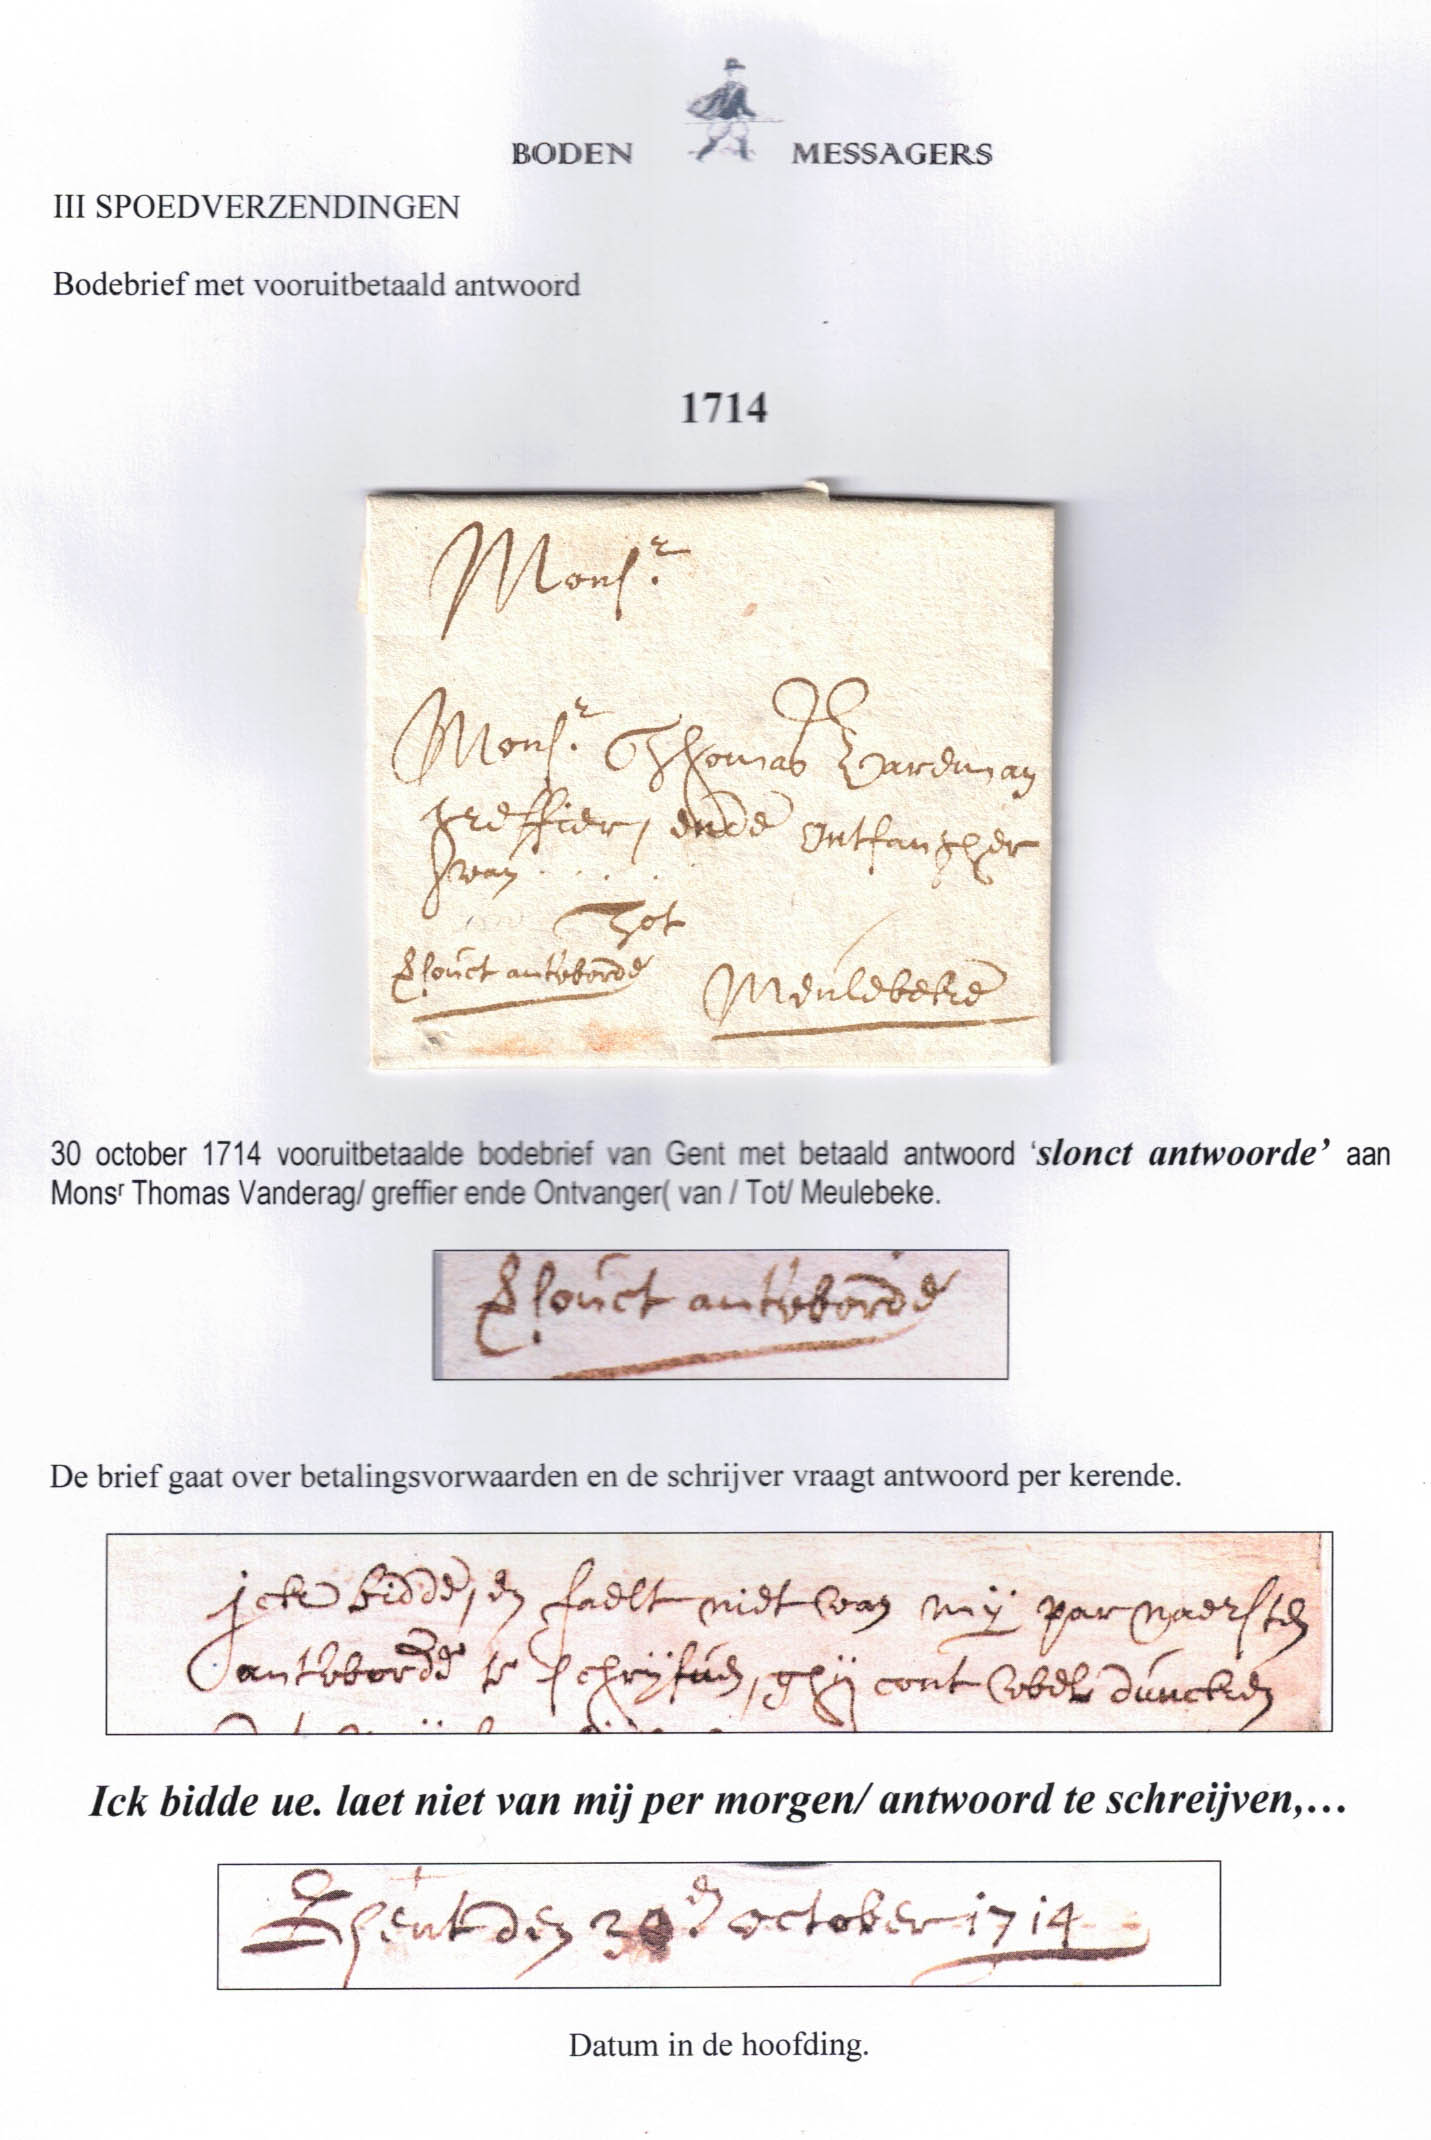 BODEN MESSAGERS
III SPOEDVERZENDINGEN
Bodebrief met vooruitbetaald antwoord
1714
Monsr
Monsr Thomas
greffier, ende ontfangher
van . . . .
Tot
antwoorde Meulebeke
30 october 1714 vooruitbetaalde bodebrief van Gent met betaald antwoord ‘slonct antwoorde’ aan
Monsr Thomas Vanderag/ greffier ende Ontvanger( van / Tot/ Meulebeke.
antwoorde
De brief gaat over betalingsvorwaarden en de schrijver vraagt antwoord per kerende.
jcke bidde, en faelt niet van mij par naersten
antwoorde te schrijfven, ghij cont wel duncken
Ick bidde ue. laet niet van mij per morgen/ antwoord te schreijven,…
Ghent den 30en october 1714
Datum in de hoofding.